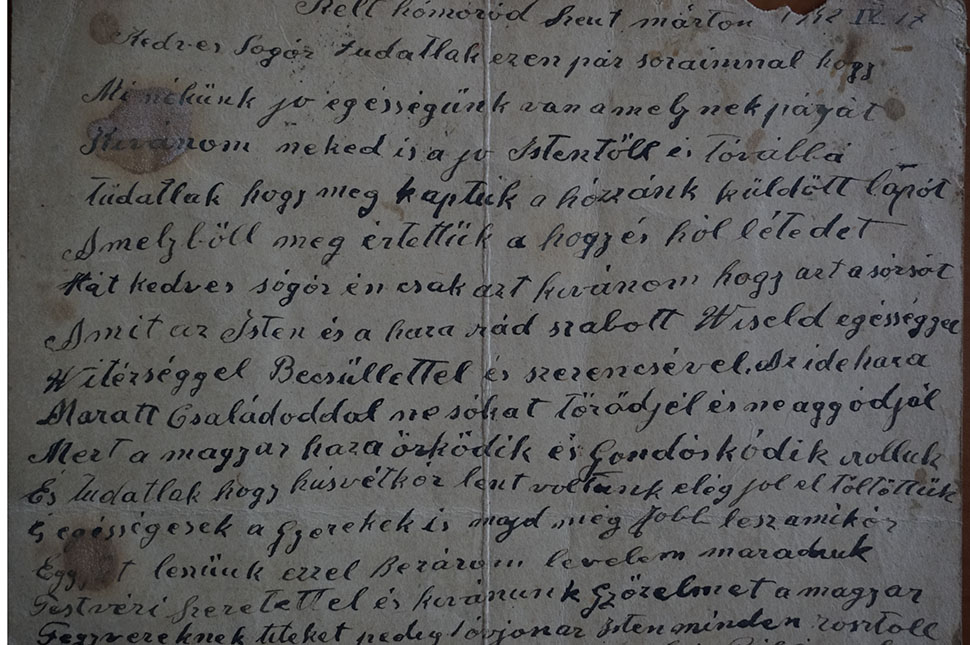 Kelt hómoród Szent márton 1942 IV. 17
Kedves Sógór tudatlak ezen pár soraimnal hogy
Mi nékünk jo egésségünk van amelynek párját
Kivánom neked is a jo Istentöll és tóvábbá
tudatlak hogy meg kaptuk a hózzánk küldött lapót
Amelyböll meg értettük a hogy és hól létedet
Hát kedves sógór én csak azt kivánom hogy azt a sórsót
Amit az Isten és a haza rád szabott Wiseld egésséggel
Witézséggel Becsüllettel és szerencsével. Az ide haza
Maratt Családoddal ne sókat törödjél és ne aggódjál
Mert a magyar haza örködik és Gondóskódik rolluk
És tudatlak hogy húsvétkór lent voltunk elég jol el töltöttük
S egésségesek a Gyerekek is majd még Jobb lesz amikór
Eggyüt lesünk ezzel Bezárom levelem maradunk
Testvéri szeretettel és kivánunk Gyözelmet a magyar
Fegyvereknek titeket pedig óvjon az Isten minden rosztoll